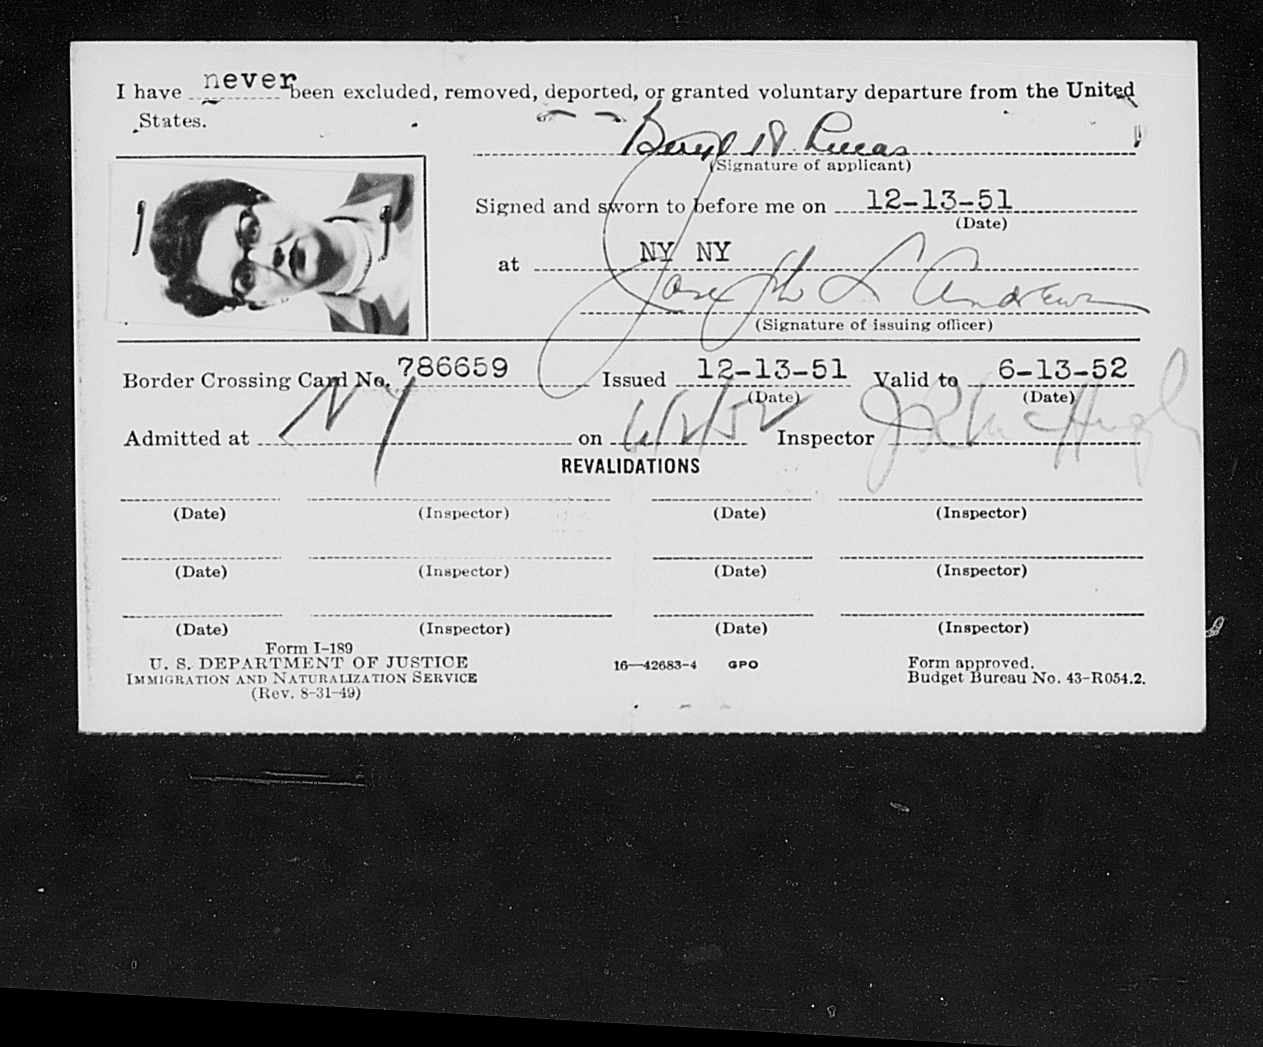 I have never been excluded, removed, deported, or granted voluntary departure from the United
States.
Beryl D. Lucas
(Signature of applicant)
Signed and sworn to before me on 12-13-51
(Date)
at NY NY
Joseph L Andrews
(Signature of issuing officer)
Border Crossing Card No. 786659 Issued 12-13-51 Valid to 6-13-52
(Date) (Date)
Admitted at NY on 6/2/52 Inspector
REVALIDATIONS
(Date) (Inspector) (Date) (Inspector)
(Date) (Inspector) (Date) (Inspector)
(Date) (Inspector) (Date) (Inspector)
Form I-189
U. S. DEPARTMENT OF JUSTICE 16—42683-4 GPO Form approved.
IMMIGRATION AND NATURALIZATION SERVICE Budget Bureau No. 43-R054.2.
(Rev. 8-31-49)